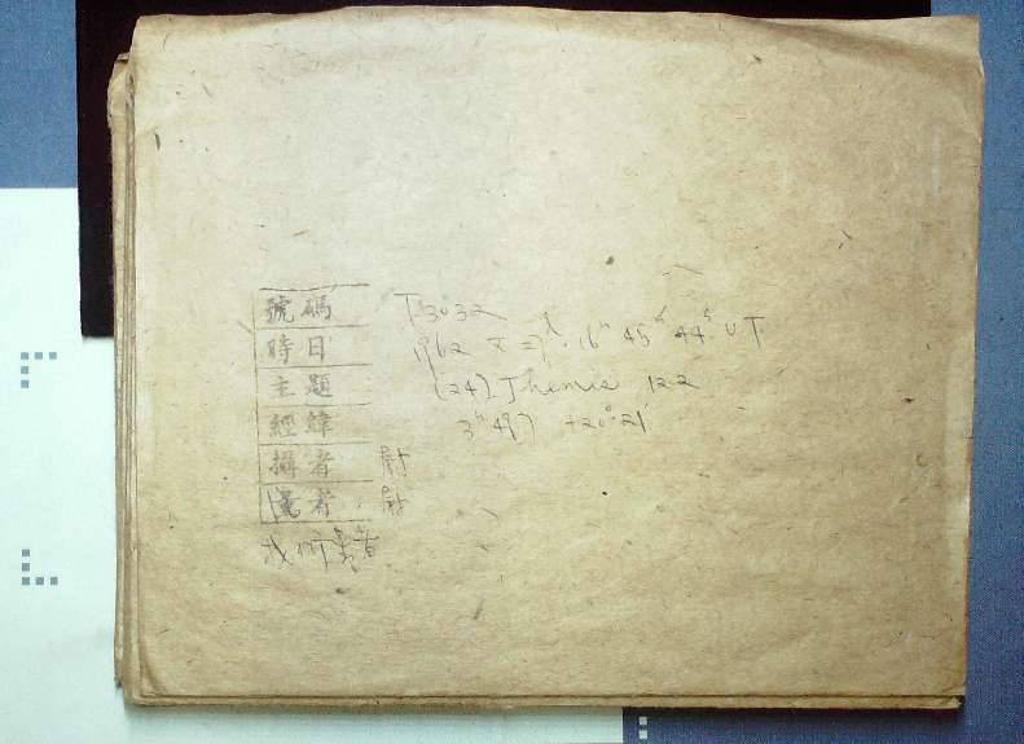 號碼 T3032
時日 1962 X 27ᵈ.16ʰ 45ᵐ 44ˢ UT
主題 (24) Themis 122
經緯 3ʰ49) +20°21'
攝者 尉
者 尉